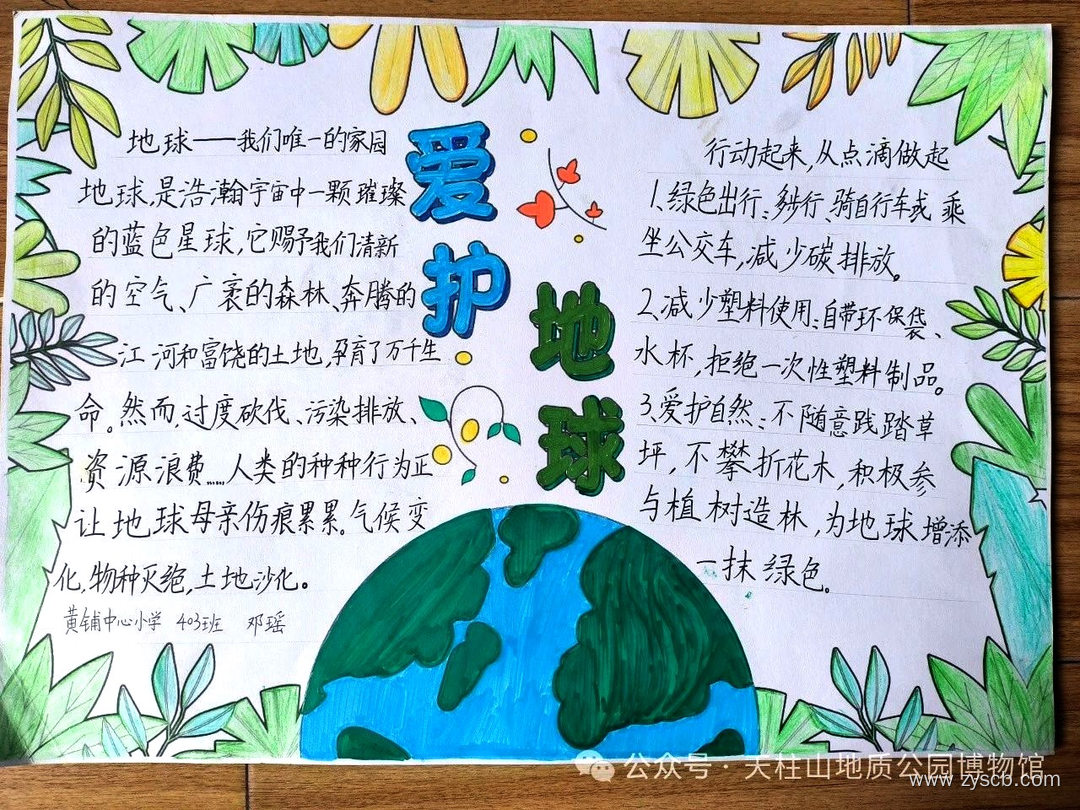 爱护
地球
地球——我们唯一的家园
地球,是浩瀚宇宙中一颗璀璨
的蓝色星球,它赐予我们清新
的空气、广袤的森林、奔腾的
江河和富饶的土地,孕育了万千生
命。然而,过度砍伐、污染排放、
资源浪费……人类的种种行为正
让地球母亲伤痕累累。气候变
化,物种灭绝,土地沙化。
黄铺中心小学 403班 邓瑶
行动起来,从点滴做起
1.绿色出行:步行、骑自行车或乘
坐公交车,减少碳排放。
2.减少塑料使用:自带环保袋、
水杯,拒绝一次性塑料制品。
3.爱护自然:不随意践踏草
坪,不攀折花木,积极参
与植树造林,为地球增添
一抹绿色。
公众号·天柱山地质公园博物馆
www.zyscb.com